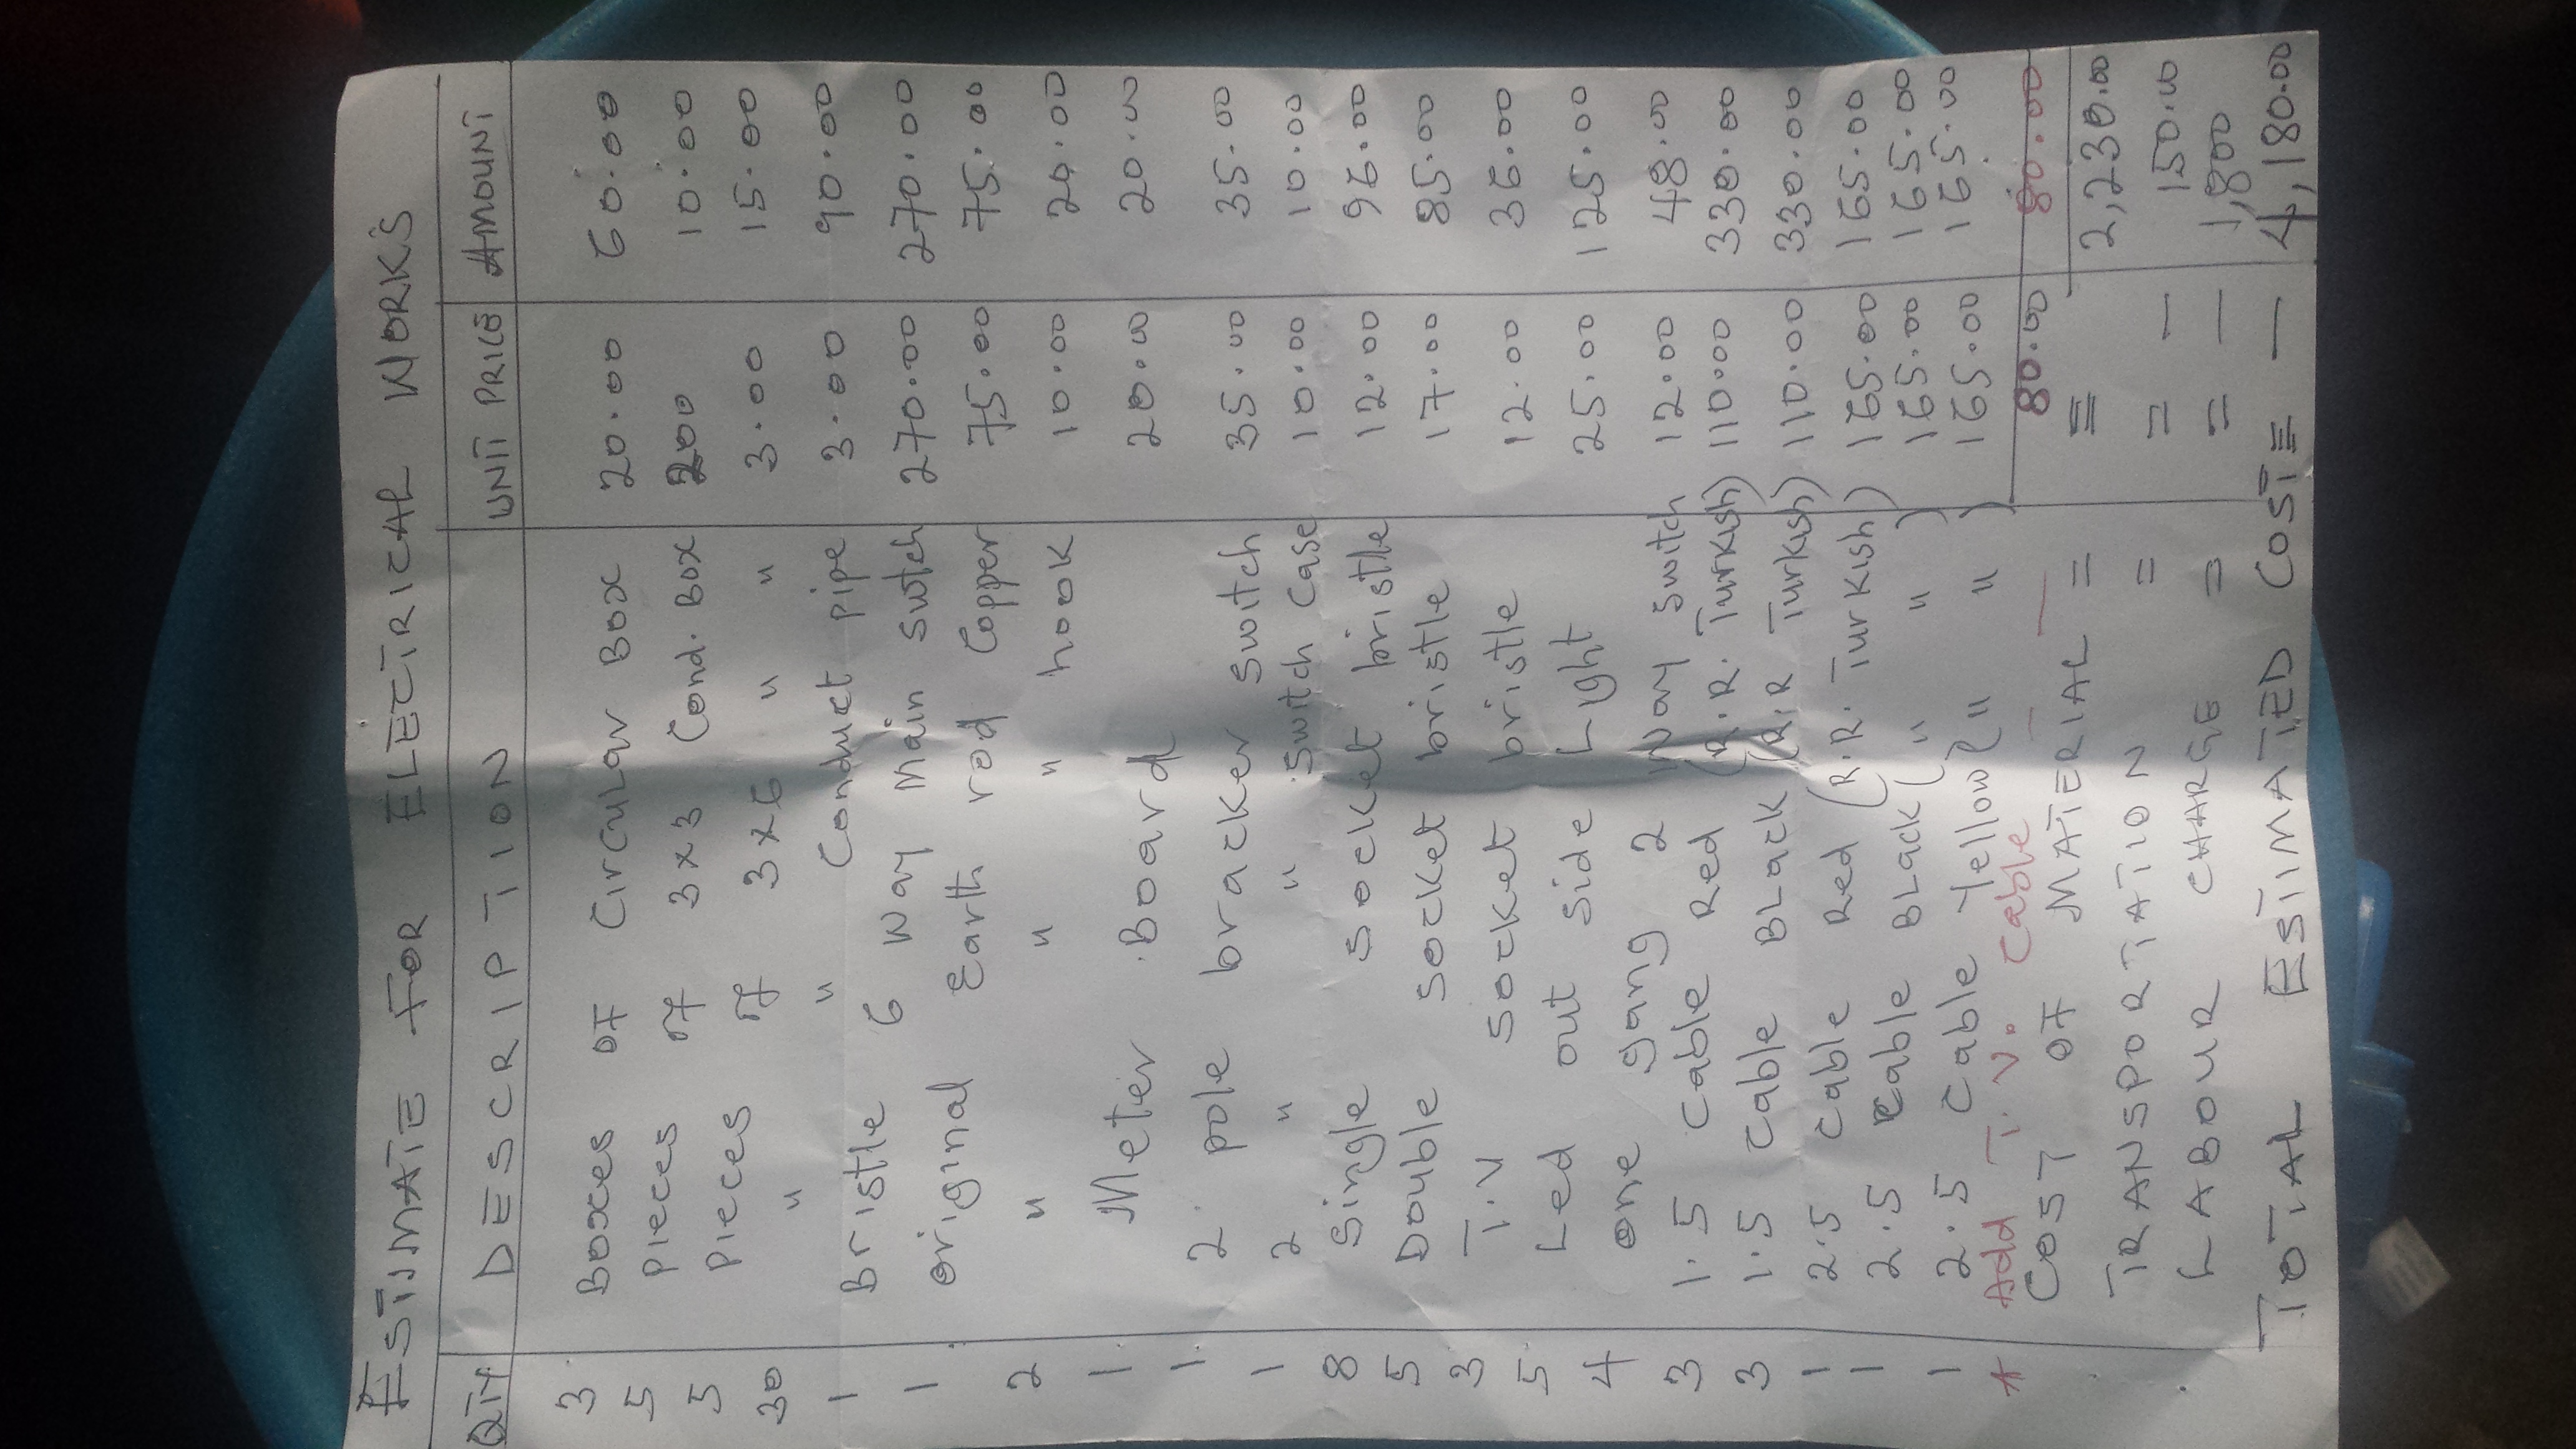 ESTIMATE FOR ELECTRICAL WORKS
QTY DESCRIPTION UNIT PRICE AMOUNT
3 Boxes OF Circular Box 20.00 60.00
5 Pieces of 3x3 Cond. Box 200 10.00
5 Pieces of 3x6 " " 3.00 15.00
30 " " Conduct pipe 3.00 90.00
1 Bristle 6 Way Main swtch 270.00 270.00
1 original Earth rod Copper 75.00 75.00
2 " " " hook 10.00 20.00
1 Meter Board 20.00 20.00
1 2 pole bracker switch 35.00 35.00
1 2 " " switch case 10.00 10.00
8 Single socket bristle 12.00 96.00
5 Double socket bristle 17.00 85.00
3 T.V socket bristle 12.00 36.00
5 Led out side Light 25.00 125.00
4 one gang 2 Way switch 12.00 48.00
3 1.5 cable Red (R.R. Turkish) 110.00 330.00
3 1.5 cable BLack (R.R Turkish) 110.00 330.00
1 2.5 cable Red (R.R. Turkish) 165.00 165.00
1 2.5 cable BLack ( " " ) 165.00 165.00
1 2.5 cable Yellow ( " " ) 165.00 165.00
* Add T.V. cable — — 80.00 80.00
COST OF MATERIAL = = — 2,230.00
TRANSPORTATION = = — 150.00
LABOUR CHARGE = = — 1,800
TOTAL ESTIMATED COST = — 4,180.00